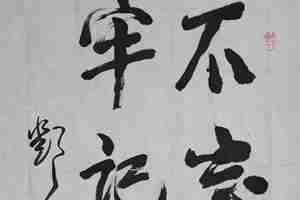 不忘
牢记